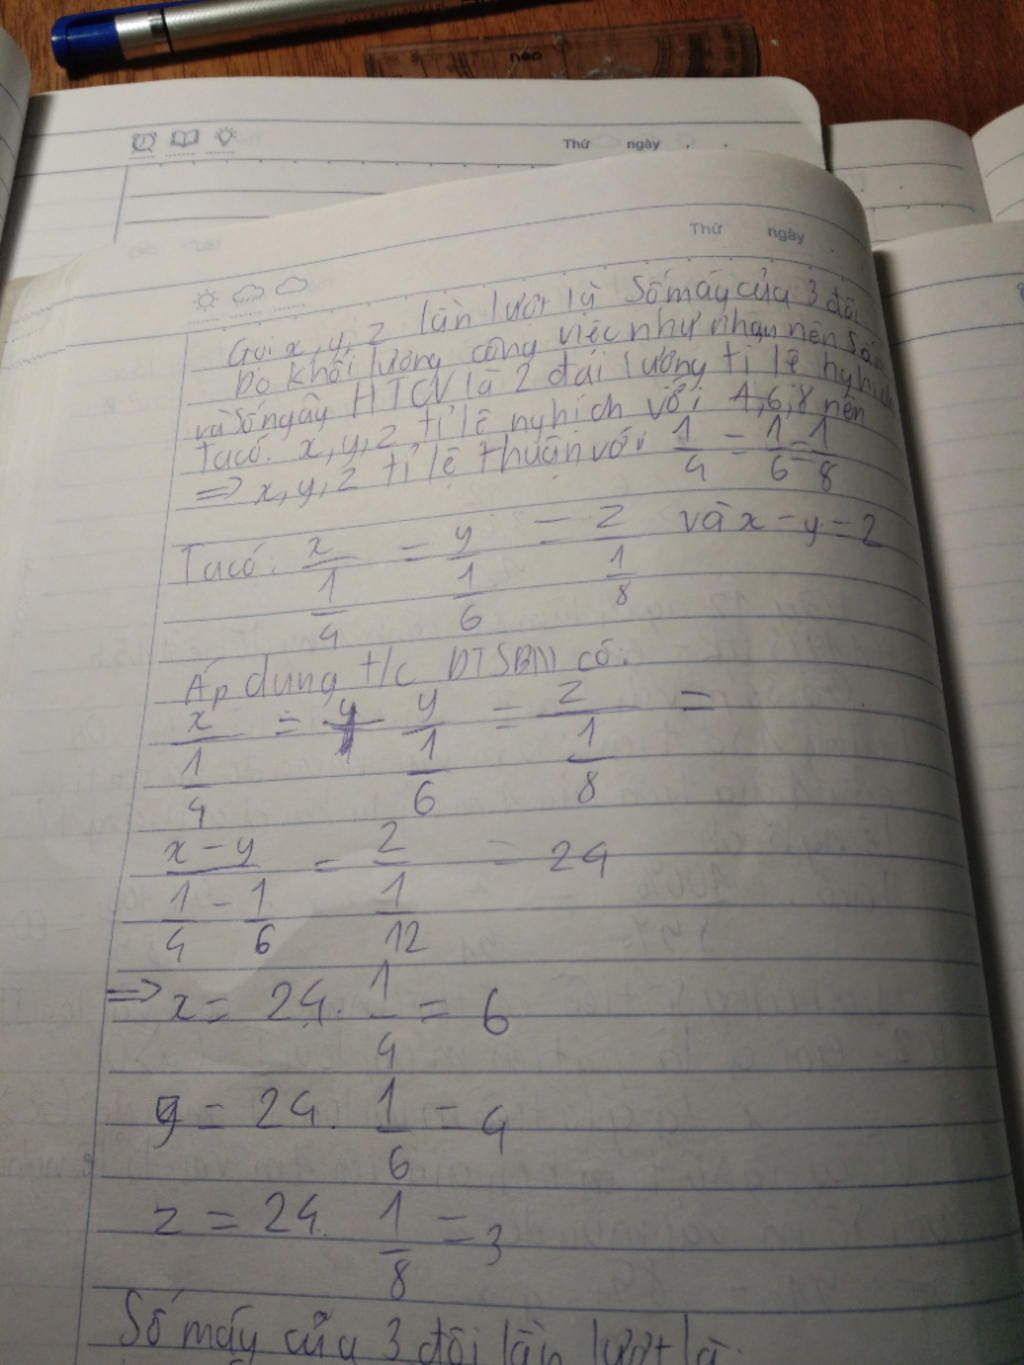 neo
Thứ ngày
Thứ ngày
Gọi x, y, z lần lượt là số máy của 3 đội
Do khối lượng công việc như nhau nên số
và số ngày HTCV là 2 đại lượng tỉ lệ nghịch
Ta có: x, y, z tỉ lệ nghịch với 4, 6, 8 nên
=> x, y, z tỉ lệ thuận với 1/4 = 1/6 = 1/8
Ta có: x/(1/4) = y/(1/6) = z/(1/8) và x - y = 2
Áp dụng t/c DTSBN có:
x/(1/4) = y/(1/6) = z/(1/8) =
(x - y)/(1/4 - 1/6) = 2/(1/12) = 24
=> x = 24. 1/4 = 6
y = 24. 1/6 = 4
z = 24. 1/8 = 3
Số máy của 3 đội lần lượt là: